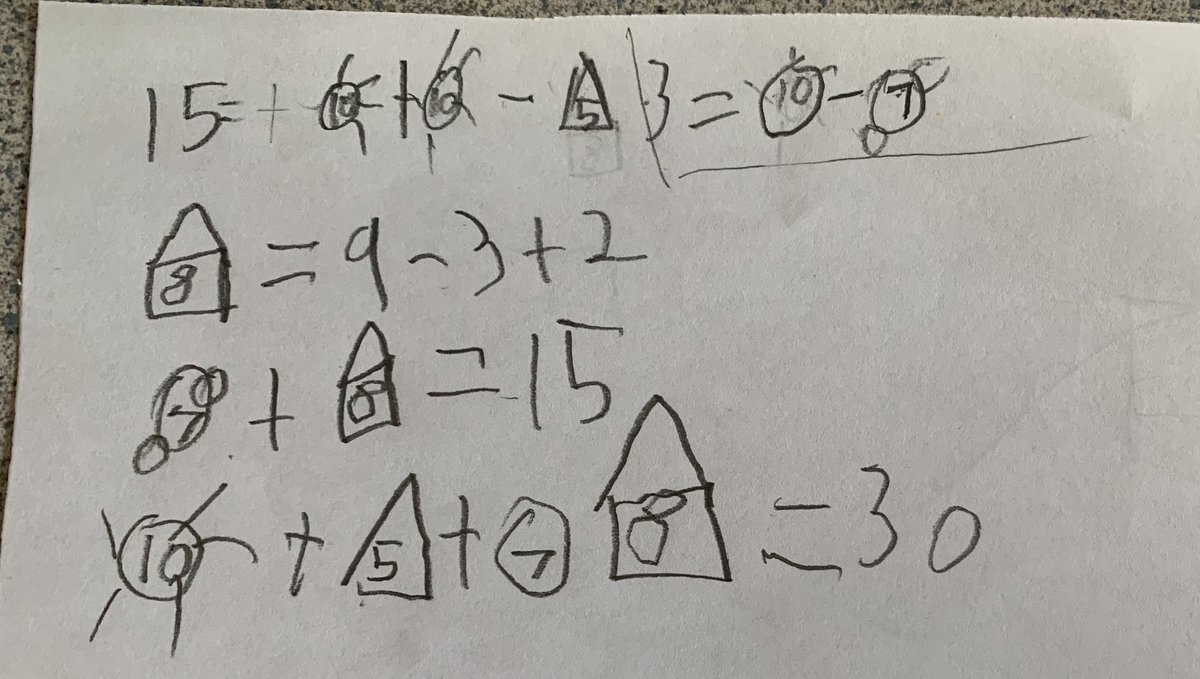 15 = + 10 + 10 - 5 | 3 = 10 - 7
8 = 9 - 3 + 2
7 + 8 = 15
10 + 5 + 7 8 = 30